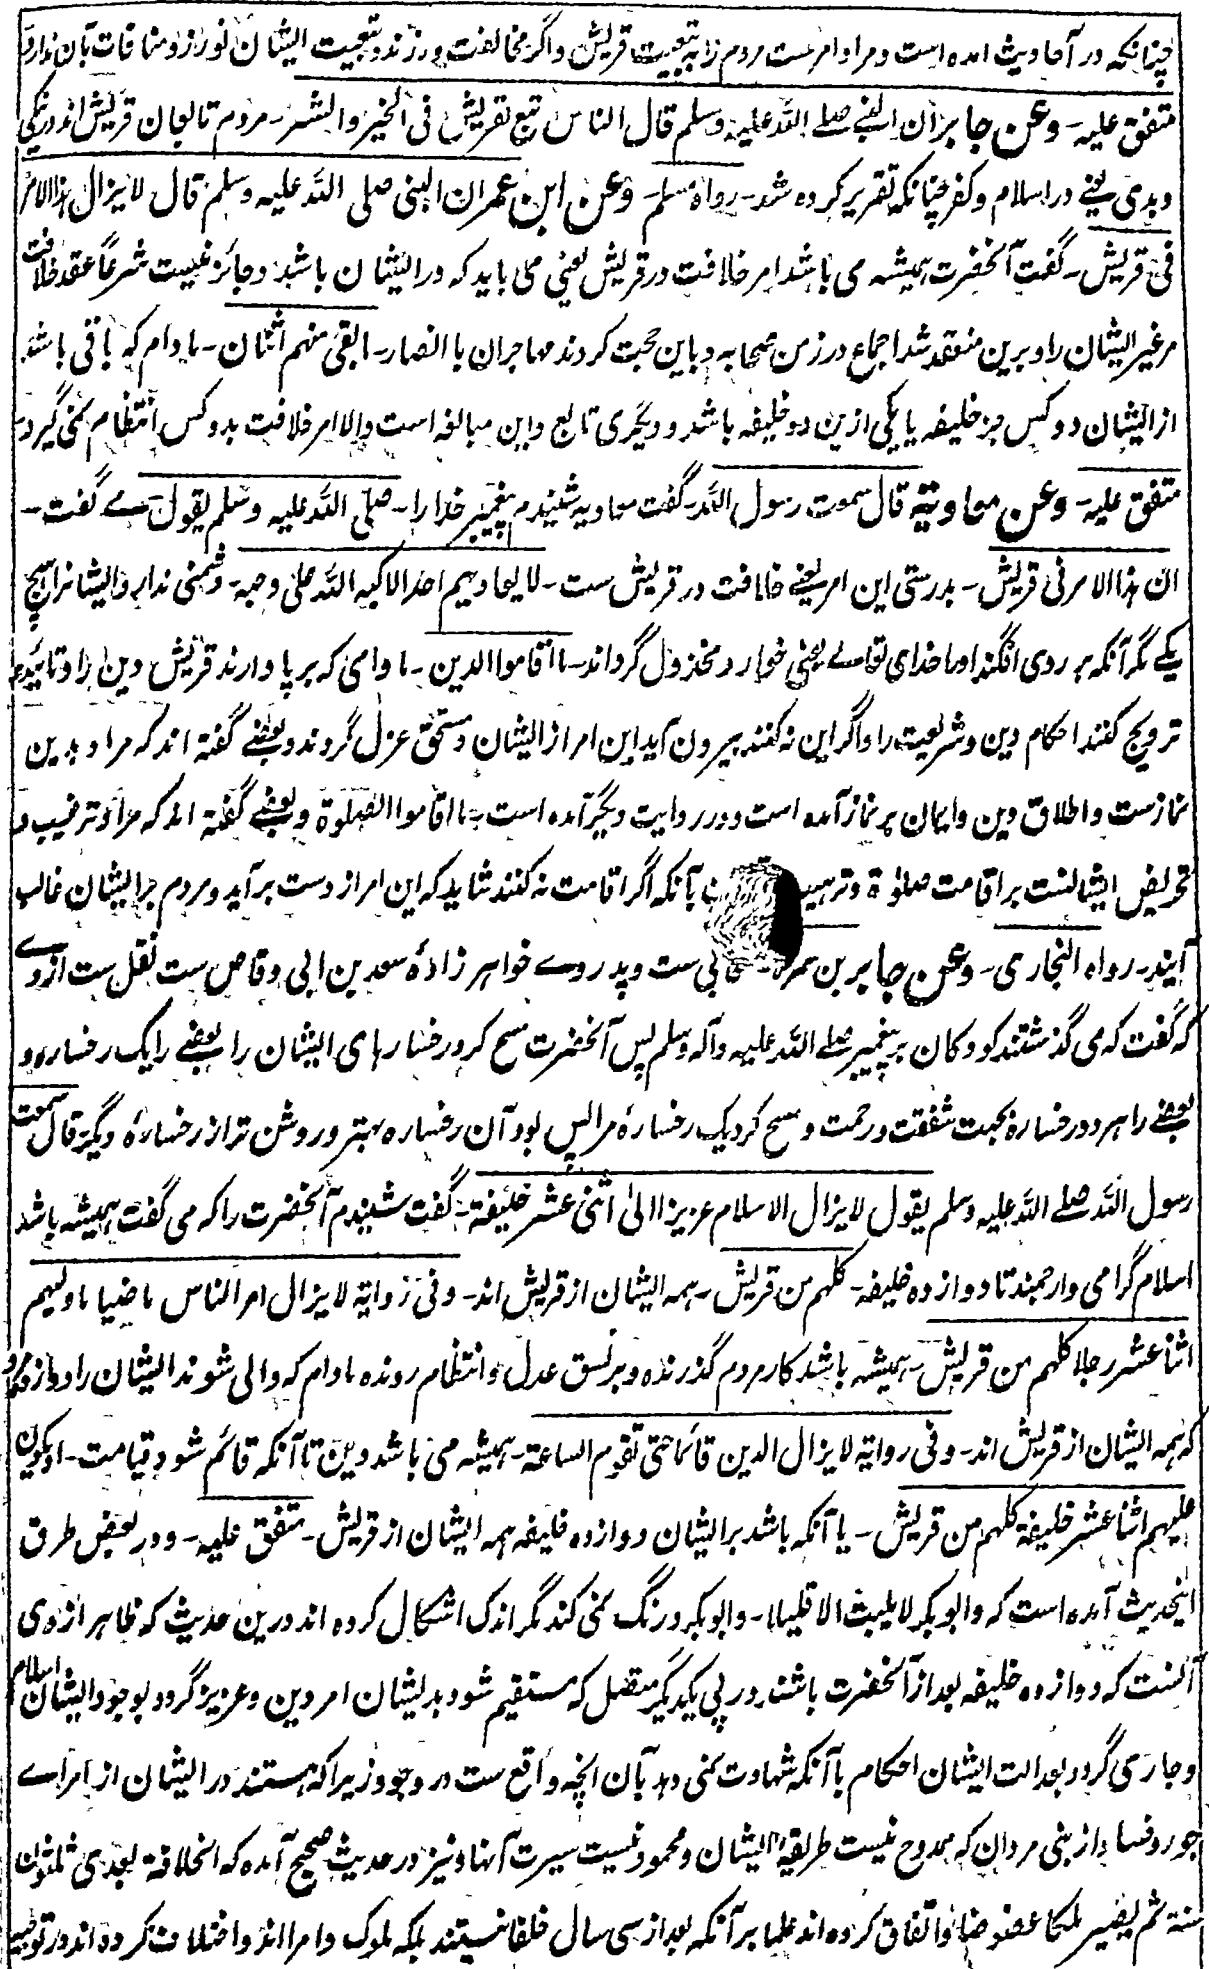 چنانکه در آحادیث امده است و مراد امرست مردم را به تبعیت قریش و اگر مخالفت ورزند و تبعیت ایشان نورزند منافات بآن ندارد
متفق علیه ۔ وعن جابر ان النبی صلے اللّه علیه وسلم قال الناس تبع لقریش فی الخیر والشر ۔ مردم تابعان قریش اند در نیکی
و بدی یعنے در اسلام و کفر چنانکه تقریر کرده شد ۔ رواه مسلم ۔ وعن ابن عمر ان النبی صلی اللّه علیه وسلم قال لا یزال هذا الامر
فی قریش ۔ گفت آنحضرت همیشه می باشد امر خلافت در قریش یعنی می باید که در ایشان باشد و جائز نیست شرعاً عقد خلافت
مر غیر ایشان را و برین منعقد شد اجماع در زمن صحابه و باین حجت کردند مهاجران با انصار ۔ ما بقی منهم اثنان ۔ مادام که باقی باشد
از ایشان دو کس جز خلیفه یا یکی ازین دو خلیفه باشد و دیگری تابع و این مبالغه است والا امر خلافت بدو کس انتظام نمی گیرد
متفق علیه ۔ وعن معاویة قال سمعت رسول اللّه ۔ گفت معاویه شنیدم پیغمبر خدا را ۔ صلی اللّه علیه وسلم یقول ۔ مے گفت ۔
ان هذا الامر فی قریش ۔ بدرستی این امر یعنے خلافت در قریش ست ۔ لا یعادیهم احد الا کبه اللّه علی وجهه ۔ دشمنی ندارد ایشانرا هیچ
یکے مگر آنکه بر روی افگند او را خدای تعالے یعنی خوار و مخذول گرداند ۔ ما اقاموا الدین ۔ مادامی که برپا دارند قریش دین را و تائید و
ترویج کنند احکام دین و شریعت را و اگر این نه کنند بیرون آید این امر از ایشان و مستحق عزل گردند و بعضے گفته اند که مراد بدین
نمازست و اطلاق دین و ایمان بر نماز آمده است و در روایت دیگر آمده است ۔ ما اقاموا الصلوة و بعضے گفته اند که مراد ترغیب و
تحریض ایشانست بر اقامت صلوٰة و ترهیب بآنکه اگر اقامت نه کنند شاید که این امر از دست برآید و مردم بر ایشان غالب
آیند ۔ رواه البخاری ۔ وعن جابر بن سمرة ۔ صحابی ست و پدر وے خواهر زادهٔ سعد بن ابی وقاص ست نقل ست از وے
که گفت که می گذشتند کودکان بر پیغمبر صلے اللّه علیه وآله وسلم پس آنحضرت مسح کرد رخسارهای ایشان را بعضے را یک رخساره و
بعضے را هر دو رخساره بجهت شفقت و رحمت و مسح کرد یک رخسارهٔ مرا پس بود آن رخساره بهتر و روشن تر از رخسارهٔ دیگر قال سمعت
رسول اللّه صلے اللّه علیه وسلم یقول لا یزال الاسلام عزیزا الیٰ اثنی عشر خلیفة ۔ گفت شنیدم آنحضرت را که می گفت همیشه باشد
اسلام گرامی و ارجمند تا دوازده خلیفه ۔ کلهم من قریش ۔ همه ایشان از قریش اند ۔ وفی روایة لا یزال امر الناس ماضیا ما ولیهم
اثنا عشر رجلا کلهم من قریش ۔ همیشه باشد کار مردم گذرنده و بر نسق عدل و انتظام رونده مادام که والی شوند ایشان را دوازده مرد
که همه ایشان از قریش اند ۔ وفی روایة لا یزال الدین قائما حتی تقوم الساعة ۔ همیشه می باشد دین تا آنکه قائم شود قیامت ۔ او یکون
علیهم اثنا عشر خلیفة کلهم من قریش ۔ یا آنکه باشد بر ایشان دوازده خلیفه همه ایشان از قریش ۔ متفق علیه ۔ و در بعض طرق
اینحدیث آمده است که وابوبکر لا یلبث الا قلیلا ۔ وابوبکر درنگ نمی کند مگر اندک اشکال کرده اند درین حدیث که ظاهر از وی
آنست که دوازده خلیفه بعد از آنحضرت باشند در پی یکدیگر متصل که مستقیم شود بدیشان امر دین و عزیز گردد بوجود ایشان اسلام
و جاری گردد بعدالت ایشان احکام با آنکه شهادت نمی دهد بآن انچه واقع ست در وجود زیرا که هستند در ایشان از امرای
جور و فساد از بنی مروان که ممدوح نیست طریقهٔ ایشان و محمود نیست سیرت آنها و نیز در حدیث صحیح آمده که الخلافة بعدی ثلثون
سنة ثم یصیر ملکا عضوضا و اتفاق کرده اند علما بر آنکه بعد از سی سال خلفا نیستند بلکه ملوک و امرا اند و اختلاف کرده اند در توجیه